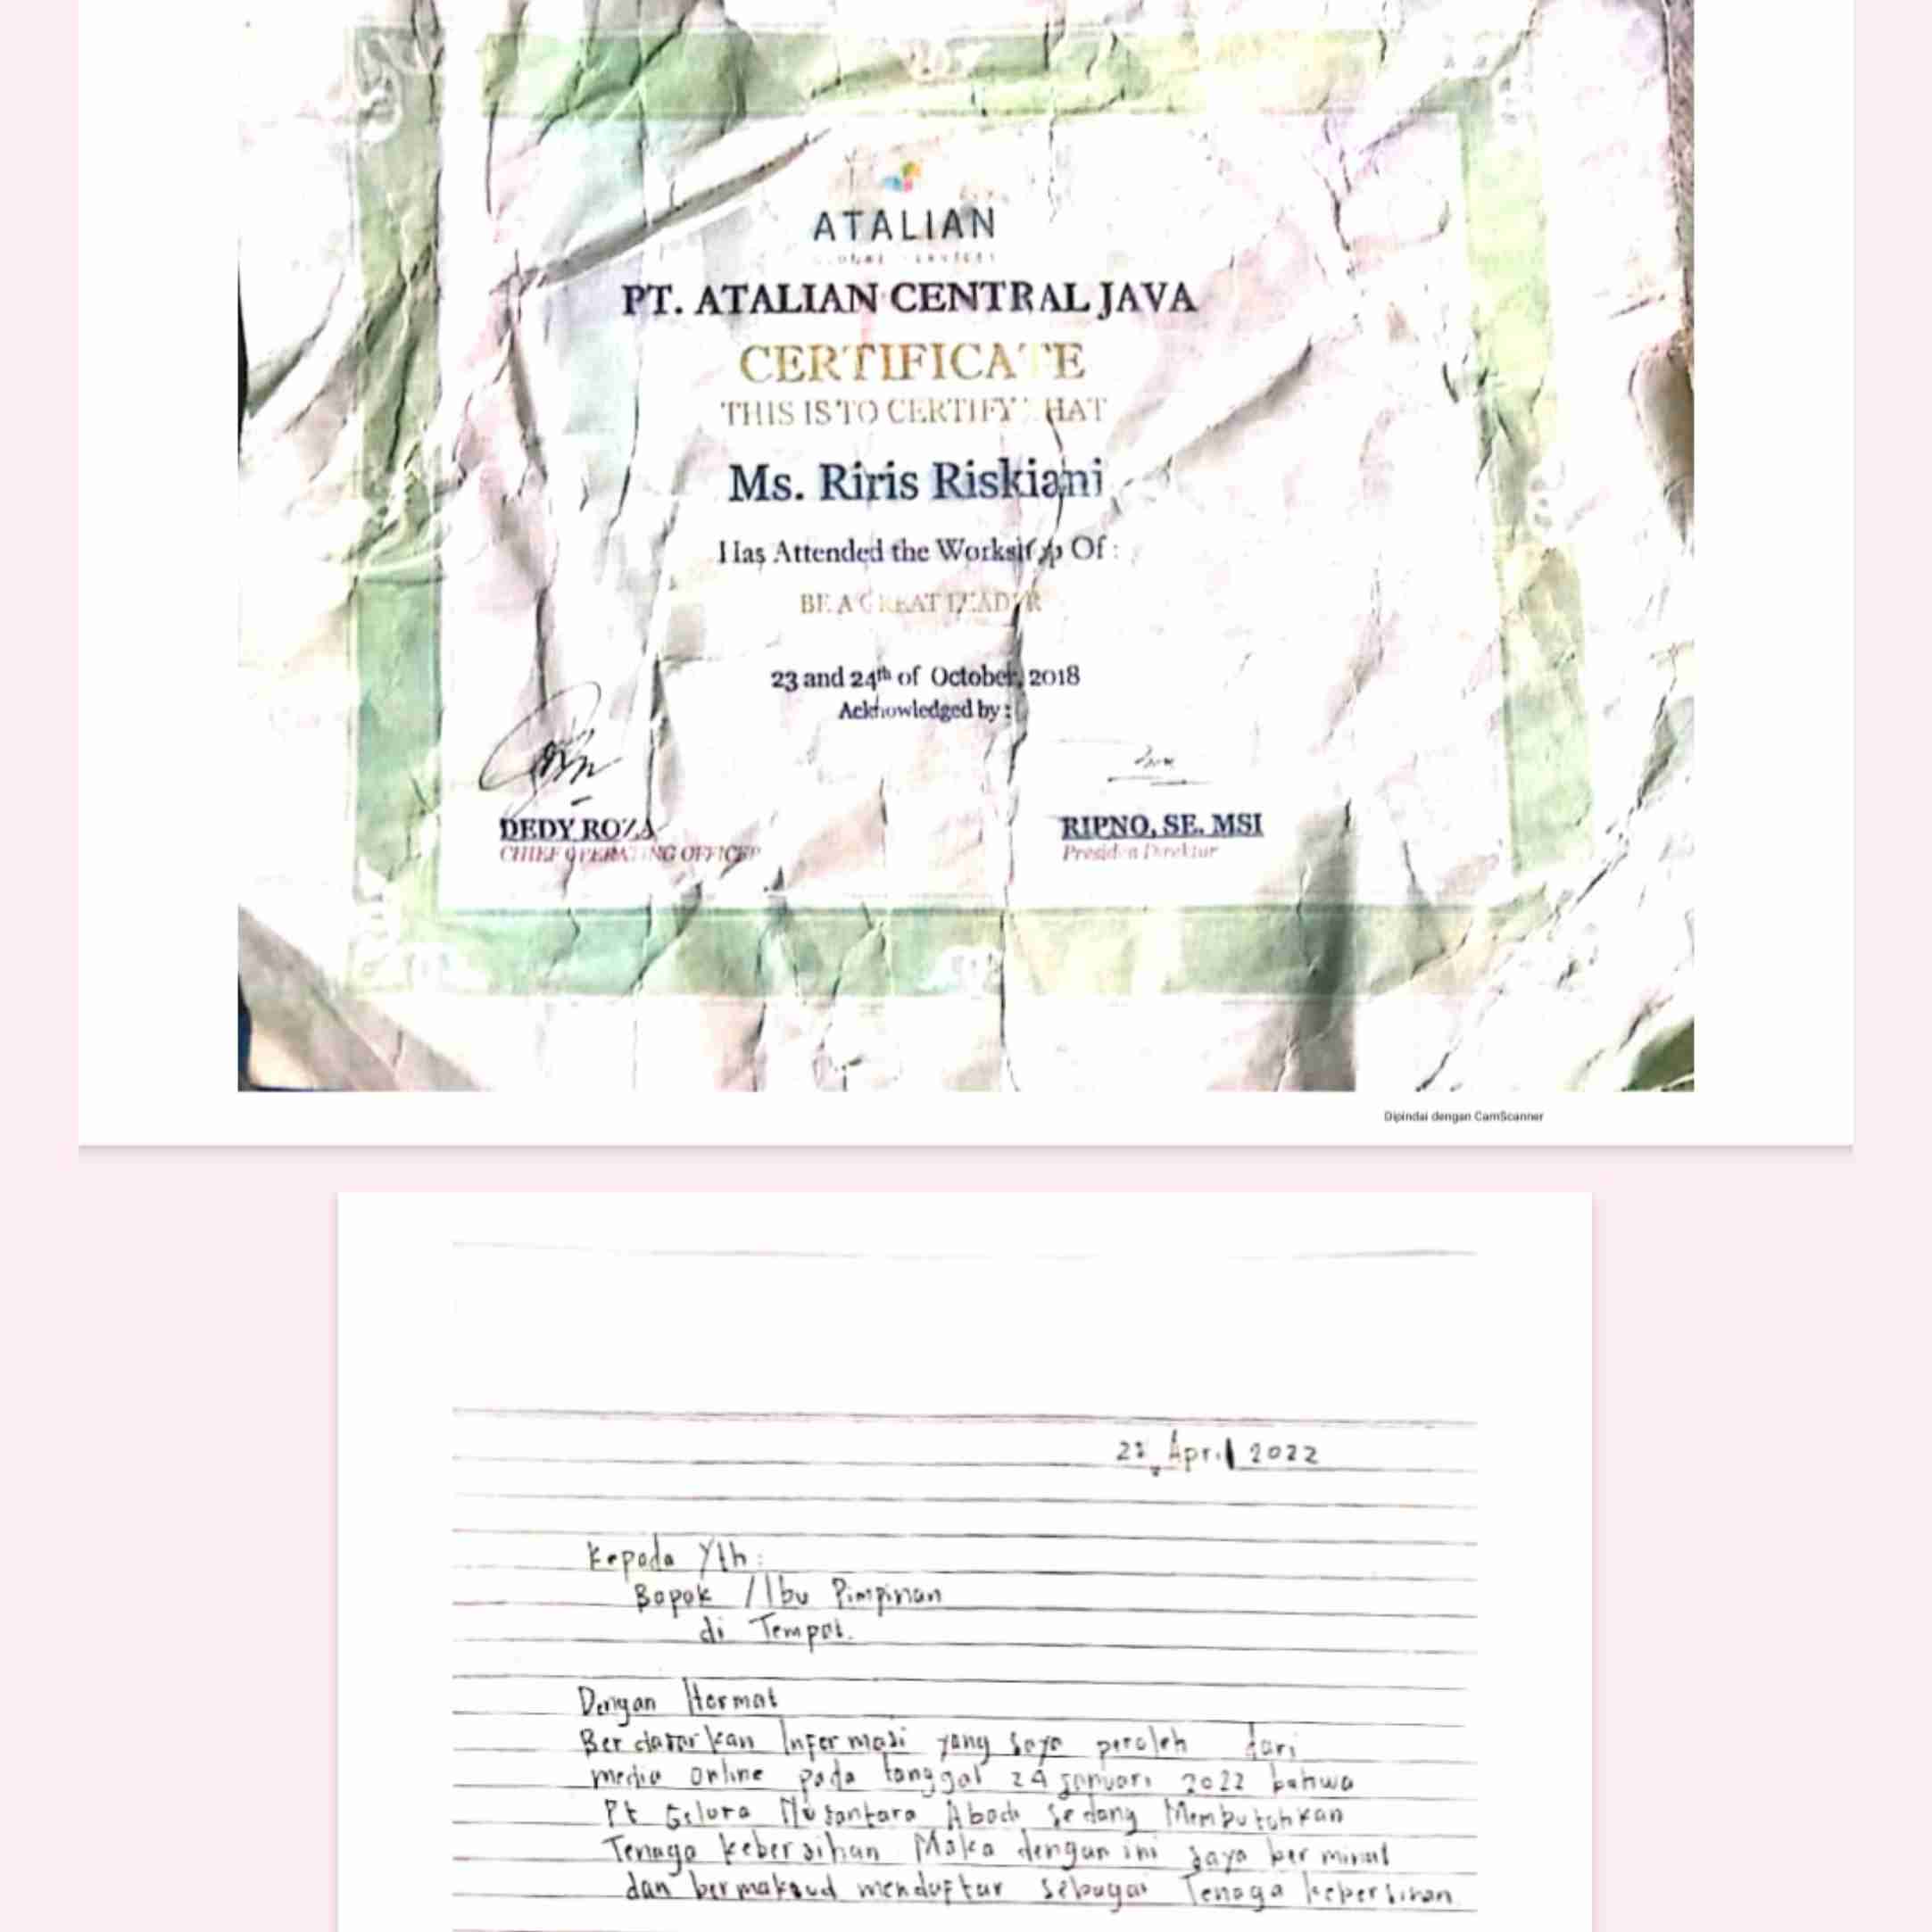 ATALIAN
GLOBAL SERVICES
PT. ATALIAN CENTRAL JAVA
CERTIFICATE
THIS IS TO CERTIFY THAT
Ms. Riris Riskiani
Has Attended the Workshop Of :
BE A GREAT LEADER
23 and 24th of October, 2018
Acknowledged by :
DEDY ROZA
CHIEF OPERATING OFFICER
RIPNO, SE. MSI
Presiden Direktur
Dipindai dengan CamScanner
April 2022
Kepada Yth :
Bapak / Ibu Pimpinan
di Tempat.
Dengan Hormat
Berdasarkan Informasi yang saya peroleh dari
media online pada tanggal 24 januari 2022 bahwa
Pt Gelora Nusantara Abadi sedang Membutuhkan
Tenaga kebersihan Maka dengan ini saya berminat
dan bermaksud mendaftar sebagai Tenaga kebersihan